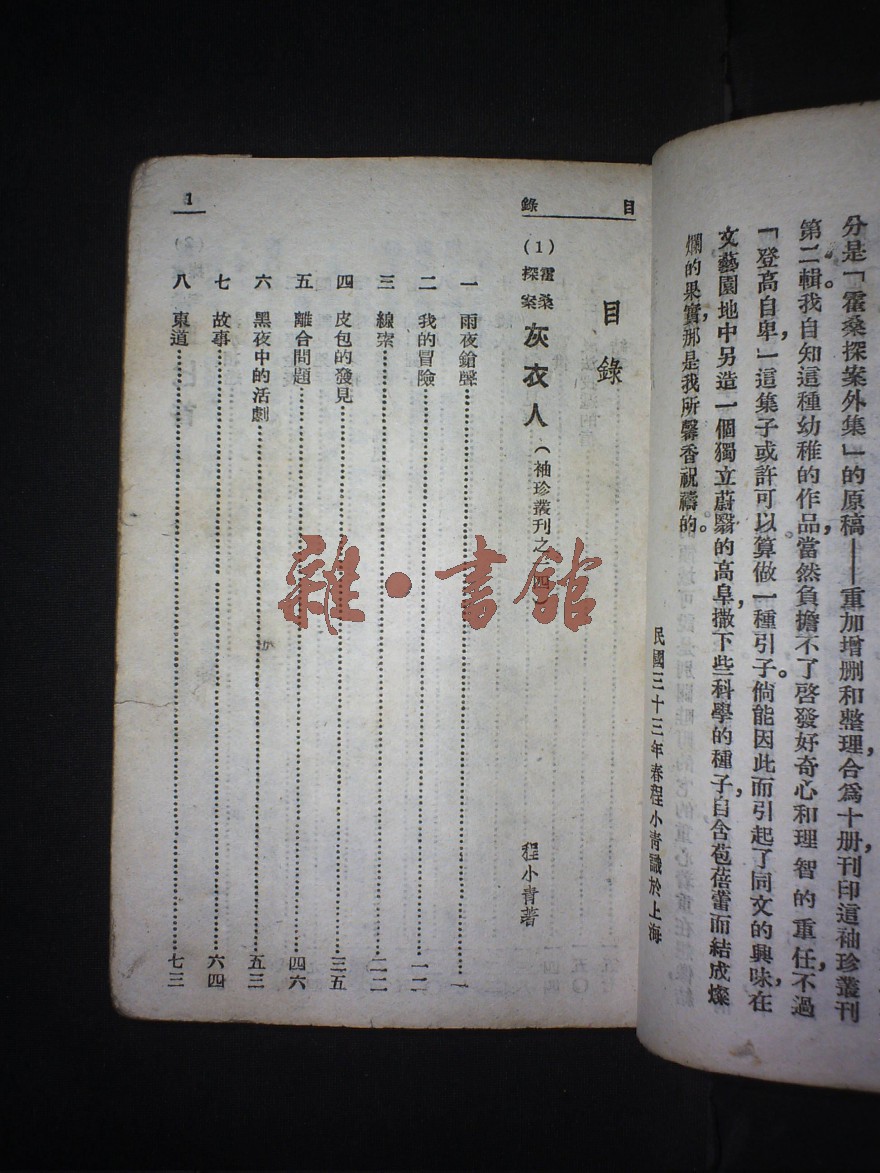 分是「霍桑探案外集」的原稿——重加增删和整理，合爲十册刊印這袖珍叢刊
第二輯。我自知這種幼稚的作品，當然負擔不了啓發好奇心和理智的重任，不過
「登高自卑」，這集子或許可以算做一種引子。倘能因此而引起了同文的興味，在
文藝園地中另造一個獨立蔚翳的高阜，撒下些科學的種子，自含苞蓓蕾而結成燦
爛的果實，那是我所馨香祝禱的。
民國三十三年春程小青識於上海
目錄
目錄
(1) 霍桑探案 灰衣人 (袖珍叢刊之 四
程小青著
一 雨夜鎗聲 一
二 我的冒險 一二
三 線索 二二
四 皮包的發見 三五
五 離合問題 四六
六 黑夜中的活劇 五三
七 故事 六四
八 東道 七三
1
雜·書館